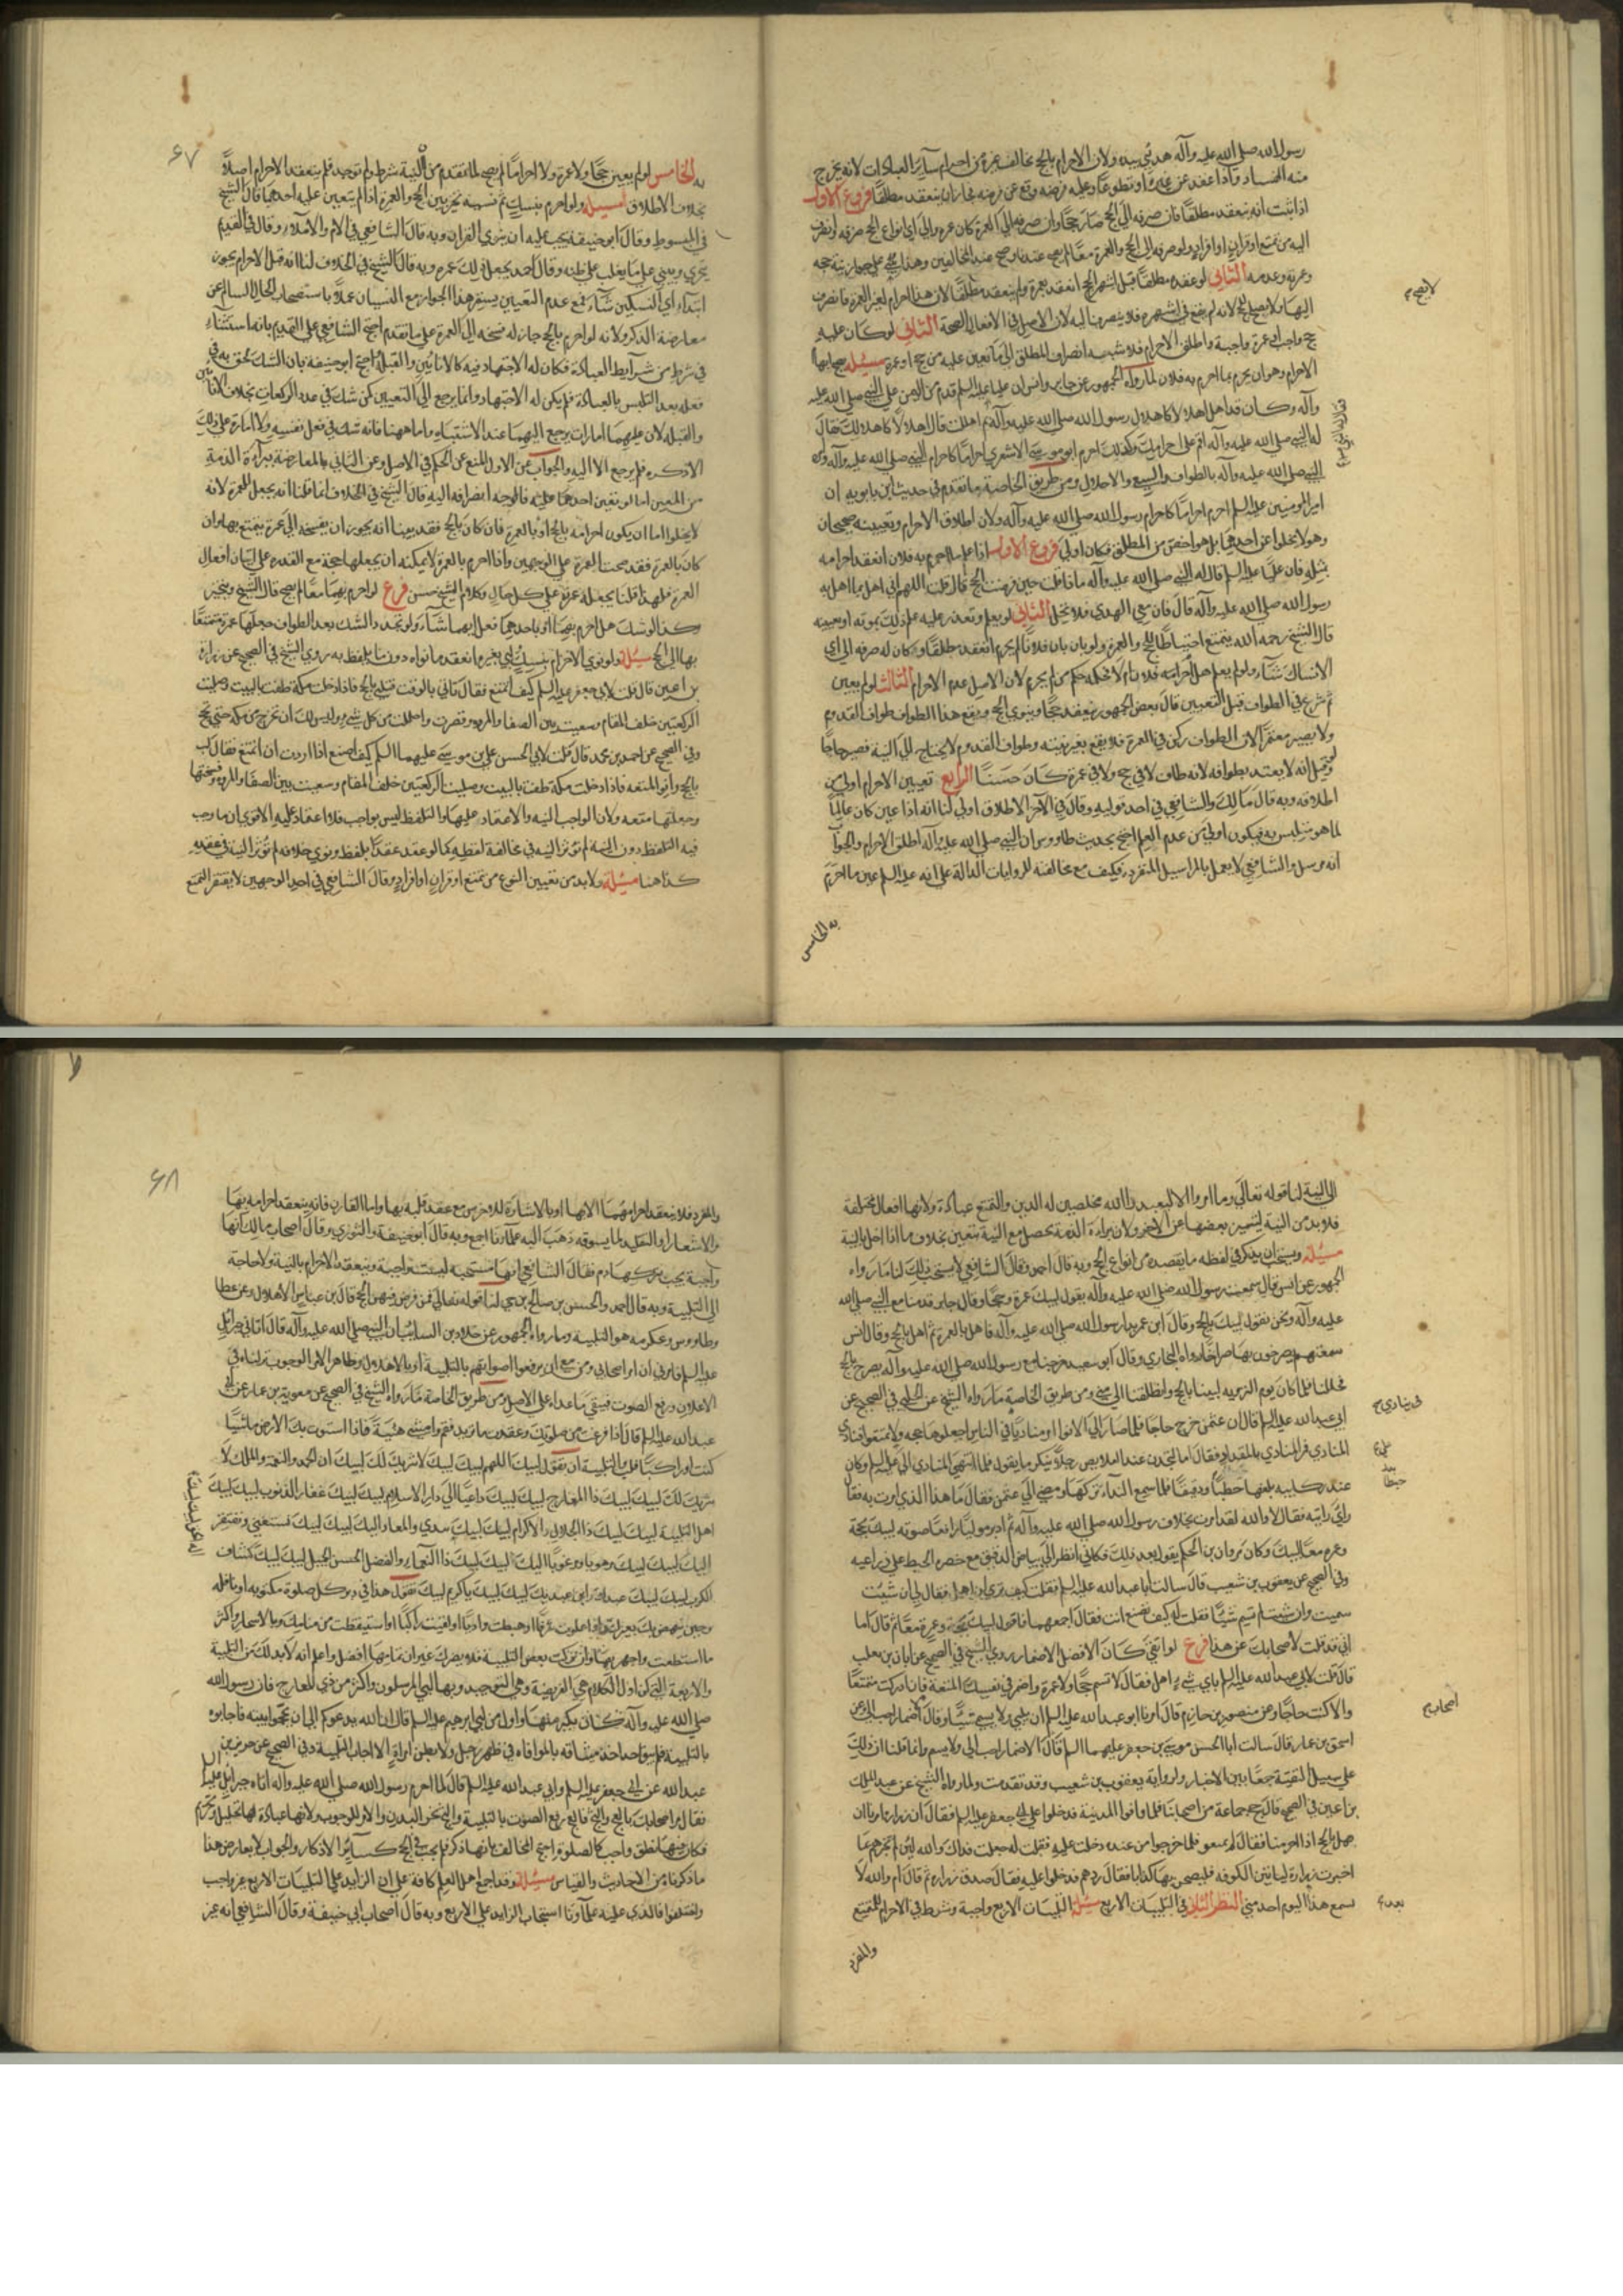 رسول الله صلى الله عليه وآله هدئي بيده ولان الاحرام بالحج يخالف غيره من احرام سآير العبادات لانه يخرج
منه الفساد واذا عقد عن غيره او تطوعا وعليه فرضه وقع عن فرضه فجاز ان ينعقد مطلقا فروع الاول
اذا ثبت انه ينعقد مطلقا فان صرفه الى الحج صار حجا وان صرفه الى العمرة كان عمرة والى اي انواع الحج صرفه انصرف
اليه من تمتع او قران او افراد ولو صرفه الى الحج والعمرة معا لم يصح عندنا وصح عند المخالفين وهذا مبني على جواز نية حجه
وعمرة وعدمه الثاني لو عقده مطلقا قبل اشهر الحج انعقد بعمرة ولم ينعقد مطلقا لان هذا احرام لغير العمرة فانصرف
اليها ولا يصح الحج لانه لم يقع في اشهره فلا ينصرف اليه لان الاصل في الافعال الصحة الثاني لو كان عليه
حج واجب او عمرة واجبة واطلق الاحرام فلا شبهة انصراف المطلق الى ما تعين عليه من حج او عمرة مسئلة يصح ابهام
الاحرام وهو ان يحرم بما احرم به فلان لما رواه الجمهور عن جابر وانس ان عليا عليه السلم قدم من اليمن على النبي صلى الله عليه
وآله وكان قد اهل اهلالا كاهلال رسول الله صلى الله عليه وآله بم اهللت قال اهلالا كاهلالك فقال
له النبي صلى الله عليه وآله اقم على احرامك وكذلك احرم ابو موسى الاشعري احراما كاحرام النبي صلى الله عليه وآله وامره
النبي صلى الله عليه وآله بالطواف والسعي والاحلال ومن طريق الخاصة ما تقدم في حديث ابن بابويه ان
امير المومنين عليه السلم احرم احراما كاحرام رسول الله صلى الله عليه وآله ولان اطلاق الاحرام وتعيينه صحيحان
وهو لا يخلوا عن احدهما بل هو اخص من المطلق فكان اولى فروع الاول اذا علم ما احرم به فلان انعقد احرامه
بمثله فان عليا عليه السلم قال له النبي صلى الله عليه وآله ما ذا قلت حين فرضت الحج قال قلت اللهم اني اهل بما اهل به
رسول الله صلى الله عليه وآله قال فان معي الهدي فلا تحل الثاني لو يعلم وتعذر عليه علم ذلك بموته او بغيبته
قال الشيخ رحمه الله يتمتع احتياطا للحج والعمرة ولو بان بان فلانا لم يحرم انعقد مطلقا وكان له صرفه الى اي
الانساك شاء ولو لم يعلم هل احرم ام لا فحكمه حكم من لم يحرم لان الاصل عدم الاحرام الثالث لو لم يعين
ثم شرع في الطواف قبل التعيين قال بعض الجمهور ينعقد حجا وينوي الحج ويقع هذا الطواف طواف القدوم
ولا يصير معتمرا لان الطواف ركن في العمرة فلا يقع بغير نية وطواف القدوم لا يحتاج الى النية فيصير حاجا
وقيل انه لا يعتد بطوافه لانه طاف لا في حج ولا في عمرة كان حسنا الرابع تعيين الاحرام اولى من
اطلاقه وبه قال مالك والشافعي في احد قوليه وقال في الآخر الاطلاق اولى لنا انه اذا عين كان عالما
لما هو متلبس به فيكون اولى من عدم العلم احتج بحديث طاووس ان النبي صلى الله عليه وآله اطلق الاحرام والجواب
انه مرسل والشافعي لا يعمل بالمراسيل المنفردة فكيف مع مخالفته للروايات الدالة على انه عليه السلم عين ما احرم
به الخامس
لا يصح
۶۷
به الخامس لو لم يعين حجا ولا عمرة ولا احراما لم يصح لما تقدم من ان النية شرط ولم توجد فلم ينعقد الاحرام اصلا
بخلاف الاطلاق مسئلة ولو احرم بنسك ثم نسيه تخير بين الحج والعمرة اذا لم يتعين عليه احدهما قال الشيخ
في المبسوط وقال ابو حنيفة يجب عليه ان ينوي القران وبه قال الشافعي في الام والاملاء وقال في القديم
يتحرى ويبني على ما يغلب على ظنه وقال احمد يجعل ذلك عمرة وبه قال الشيخ في الخلاف لنا انه قبل الاحرام يجوز
ابتداء اي النسكين شاء فمع عدم التعيين يستمر هذا الجواز مع النسيان عملا باستصحاب الحال السالم عن
معارضة الذكر ولانه لو احرم بالحج جاز له فسخه الى العمرة على ما تقدم احتج الشافعي على القديم بانه اشتباه
في شرط من شرآيط العبادة فكان له الاجتهاد فيه كالانائين والقبلة احتج ابو حنيفة بان الشك لحق به في
فعله بعد التلبس بالعبادة فلم يكن له الاجتهاد وانما يرجع الى التعيين كمن شك في عدد الركعات بخلاف الانائين
والقبلة لان عليهما امارات يرجع اليهما عند الاشتباه واما ههنا فانه شك في فعل نفسه ولا امارة على ذلك
الا ذكره فلم يرجع الا اليه والجواب عن الاول المنع عن الحكم في الاصل وعن الثاني بالمعارضة ببرآءة الذمة
من المعين اما لو تعين احدهما عليه فالوجه انصرافه اليه قال الشيخ في الخلاف انما قلنا انه يجعل للعمرة لانه
لا يخلوا اما ان يكون احرامه بالحج او بالعمرة فان كان بالحج فقد بينا انه يجوز ان يفسخه الى عمرة يتمتع بها وان
كان بالعمرة فقد صحت العمرة على الوجهين واذا احرم بالعمرة لا يمكنه ان يجعلها حجة مع القدرة على اتيان افعال
العمرة فلهذا قلنا يجعله عمرة على كل حال وكلام الشيخ حسن فرع لو احرم بهما معا لم يصح قال الشيخ ويتخير
وكذا لو شك هل احرم بهما او باحدهما فعل ايهما شآء ولو تجدد الشك بعد الطواف جعلها عمرة متمتعا
بها الى الحج مسئلة ولو نوى الاحرام بنسك ولبى بغيره انعقد ما نواه دون ما تلفظ به روى الشيخ في الصحيح عن زرارة
بن اعين قال قلت لابي جعفر عليه السلم كيف اتمتع فقال تأتي بالوقت فتلبي بالحج فاذا دخلت مكة طفت بالبيت وصليت
الركعتين خلف المقام وسعيت بين الصفا والمروة وقصرت واحللت من كل شيء وليس لك ان تخرج من مكة حتى تحج
وفي الصحيح عن احمد بن محمد قال قلت لابي الحسن علي بن موسى عليهما السلم كيف اصنع اذا اردت ان اتمتع فقال لب
بالحج وانو المتعة فاذا دخلت مكة طفت بالبيت وصليت الركعتين خلف المقام وسعيت بين الصفا والمروة وفسختها
وجعلتها متعة ولان الواجب النية والاعتماد عليها والتلفظ ليس بواجب فلا اعتماد عليه الا ترى ان ما وجب
فيه التلفظ دون النية لم تؤثر النية في مخالفة لفظه كما لو عقد عقدا بلفظ ونوى خلافه لم تؤثر النية في عقده
كذا هنا مسئلة ولا بد من تعيين النوع من تمتع او قران او افراد وقال الشافعي في احد الوجهين لا يفتقر التمتع
الى النية لنا قوله تعالى وما امروا الا ليعبدوا الله مخلصين له الدين والتمتع عبادة ولانها افعال مختلفة
فلا بد من النية ليتميز بعضها عن الآخر ولان براءة الذمة تحصل مع النية بتعين بخلاف ما اذا اخل بالنية
مسئلة ويستحب ان يذكر في لفظه ما يقصده من انواع الحج وبه قال احمد وقال الشافعي لا يستحب ذلك لنا ما رواه
الجمهور عن انس قال سمعت رسول الله صلى الله عليه وآله يقول لبيك عمرة وحجا وقال جابر قدمنا مع النبي صلى الله
عليه وآله ونحن نقول لبيك بالحج وقال ابن عمر بدأ رسول الله صلى الله عليه وآله فاهل بالعمرة ثم اهل بالحج وقال انس
سمعتهم يصرخون بها صراخا رواه البخاري وقال ابو سعيد خرجنا مع رسول الله صلى الله عليه وآله نصرخ بالحج
فحللنا فلما كان يوم التروية لبينا بالحج وانطلقنا الى منى ومن طريق الخاصة ما رواه الشيخ عن الحلبي في الصحيح عن
ابي عبد الله عليه السلم قال ان عثمن خرج حاجا فلما صار الى الابواء امر مناديا في الناس اجعلوها حجة ولا تمتعوا فنادى
المنادي فمر المنادي بالمقداد فقال اما لتجدن عند القلايص رجلا ينكر ما يقول فلما انتهى المنادي الى علي عليه السلم وكان
عند ركايبه يلقمها خبطا ودقيقا فلما سمع النداء تركها ومضى الى عثمن فقال ما هذا الذي امرت به فقال
راي رايته فقال لا والله لقد امرت بخلاف رسول الله صلى الله عليه وآله ثم ادبر موليا رافعا صوته لبيك بحجة
وعمرة معا لبيك وكان مروان بن الحكم يقول بعد ذلك فكاني انظر الى بياض الدقيق مع خضرة الخبط على ذراعيه
وفي الصحيح عن يعقوب بن شعيب قال سالت ابا عبد الله عليه السلم فقلت كيف ترى ان اهل فقال لي ان شئت
سميت وان شئت لم تسم شيئا فقلت له كيف تصنع انت فقال اجمعهما فاقول لبيك بحجة وعمرة معا ثم قال اما
اني قد قلت لاصحابك غير هذا فرع لو اتقى كان الافضل الاضمار روى الشيخ في الصحيح عن ابان بن تغلب
قال قلت لابي عبد الله عليه السلم باي شيء اهل فقال لا تسم حجا ولا عمرة واضمر في نفسك المتعة فان ادركت متمتعا
والا كنت حاجا وعن منصور بن حازم قال امرنا ابو عبد الله عليه السلم ان نلبي ولا نسمي شيئا وقال الاضمار احب الي وعن
اسحق بن عمار قال سالت ابا الحسن موسى بن جعفر عليهما السلم قال الاضمار احب الي ولا يسم وانما قلنا ان ذلك
على سبيل التقية جمعا بين الاخبار ولرواية يعقوب بن شعيب وقد تقدمت ولما رواه الشيخ عن عبد الملك
بن اعين في الصحيح قال حج جماعة من اصحابنا فلما وافوا المدينة فدخلوا على ابي جعفر عليه السلم فقال ان زرارة امرنا ان
نهل بالحج اذا احرمنا فقال لهم تمتعوا فلما خرجوا من عنده دخلت عليه فقلت له جعلت فداك والله لئن لم تخبرهم بما
اخبرت زرارة ليأتين الكوفة فليصبحن بها كذابا فقال ردهم فدخلوا عليه فقال صدق زرارة ثم قال ام والله لا
يسمع هذا اليوم احد مني النظر الثالث في التلبيات الاربع مسئلة التلبيات الاربع واجبة وشرط في الاحرام للمتمتع
والمفرد
اصحابه
بعد
۶۸
والمفرد فلا ينعقد احرامهما الا بها او بالاشارة للاخرس مع عقد قلبه بها واما القارن فانه ينعقد احرامه بها
والاشعار او التقليد لما يسوقه ذهب اليه علمآؤنا اجمع وبه قال ابو حنيفة والثوري وقال اصحاب مالك انها
واجبة يجب بتركها دم وقال الشافعي انها مستحبة ليست واجبة وينعقد الاحرام بالنية ولا حاجة
الى التلبية وبه قال احمد والحسن بن صالح بن حي لنا قوله تعالى فمن فرض فيهن الحج قال بن عباس الاهلال وعن عطا
وطاووس وعكرمة هو التلبية وما رواه الجمهور عن خلاد بن السايب ان النبي صلى الله عليه وآله قال اتاني جبرائيل
عليه السلم فامرني ان امر اصحابي ومن معي ان يرفعوا اصواتهم بالتلبية او بالاهلال وظاهر الامر الوجوب تركناه في
الاعلان ورفع الصوت فيبقى ما عداه على الاصل ومن طريق الخاصة ما رواه الشيخ في الصحيح عن معوية بن عمار عن ابي
عبد الله عليه السلم قال اذا فرغت من صلوتك وعقدت ما تريد فقم وامش هنيئة فاذا استوت بك الارض ماشيا
كنت او راكبا فلب والتلبية ان تقول لبيك اللهم لبيك لبيك لا شريك لك لبيك ان الحمد والنعمة والملك لا
شريك لك لبيك لبيك ذا المعارج لبيك لبيك داعيا الى دار الاسلام لبيك لبيك غفار الذنوب لبيك لبيك
اهل التلبية لبيك لبيك ذا الجلال والاكرام لبيك لبيك تبدي والمعاد اليك لبيك لبيك تستغني ويفتقر
اليك لبيك لبيك مرهوبا ومرغوبا اليك لبيك لبيك ذا النعمآء والفضل الحسن الجميل لبيك لبيك كشاف
الكرب لبيك لبيك عبدك وابن عبديك لبيك لبيك يا كريم لبيك تقول هذا في دبر كل صلوة مكتوبة او نافلة
وحين ينهض بك بعيرك واذا علوت شرفا او هبطت واديا او لقيت راكبا او استيقظت من منامك وبالاسحار واكثر
ما استطعت واجهر بها وان تركت بعض التلبية فلا يضرك غير ان تمامها افضل واعلم انه لا بد لك من التلبية
والاربعة التي كن اول الكلام هي الفريضة وهي التوحيد وبها لبى المرسلون واكثر من ذي المعارج فان رسول الله
صلى الله عليه وآله كان يكثر منها واول من لبى ابرهيم عليه السلم قال ان الله يدعوكم الى ان تحجوا بيته فاجابوه
بالتلبية فلم يبق احد اخذ ميثاقه بالموافاة في ظهر رجل ولا بطن امراة الا اجاب بالتلبية وفي الصحيح عن حريز بن
عبد الله عن ابي جعفر عليه السلم وابي عبد الله عليه السلم قال لما احرم رسول الله صلى الله عليه وآله اتاه جبرائيل عليه السلم
فقال مر اصحابك بالعج والثج فالعج رفع الصوت بالتلبية والثج نحر البدن والامر للوجوب ولانها عبادة لها تحليل وتحريم
فكان فيها نطق واجب كالصلوة احتج المخالف بانها ذكر فلم يجب في الحج كسائر الاذكار والجواب لا يعارض هذا
ما ذكرناه من الاحاديث والقياس مسئلة وقد اجمع اهل العلم كافة على ان الزايد على التلبيات الاربع غير واجب
واختلفوا فالذي عليه علمآؤنا استحباب الزايد على الاربع وبه قال اصحاب ابي حنيفة وقال الشافعي انه غير